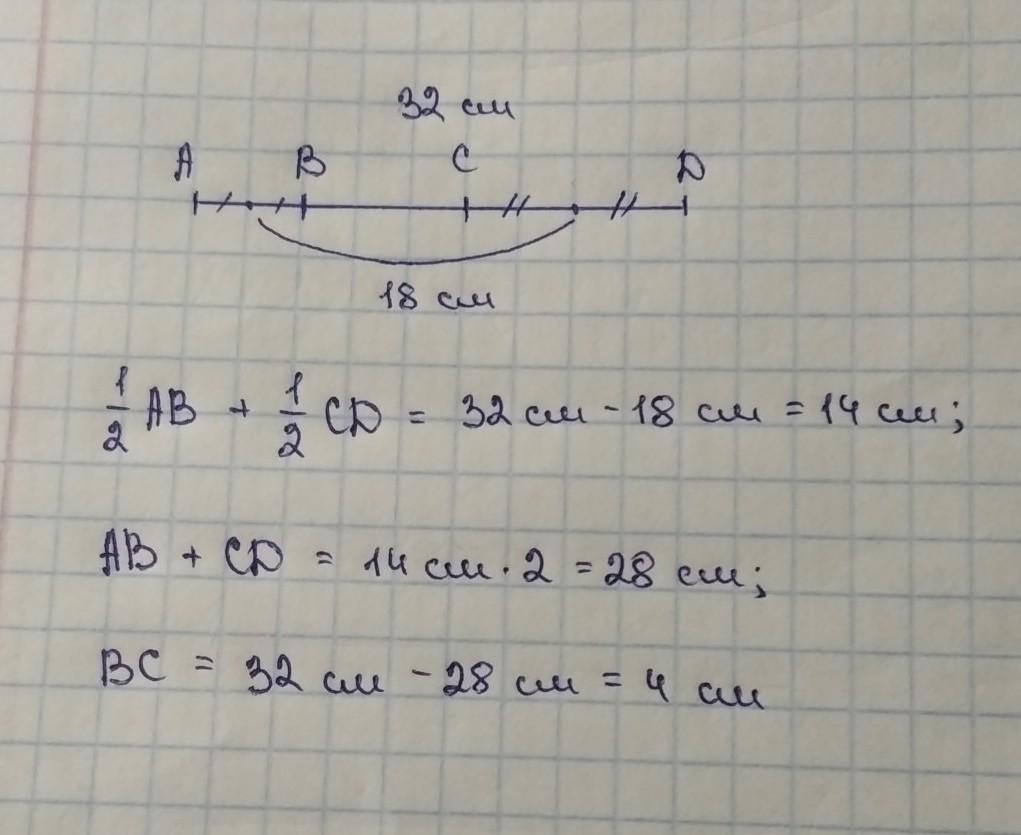 32 см
A B C D
18 см
1/2 AB + 1/2 CD = 32 см - 18 см = 14 см;
AB + CD = 14 см · 2 = 28 см;
BC = 32 см - 28 см = 4 см